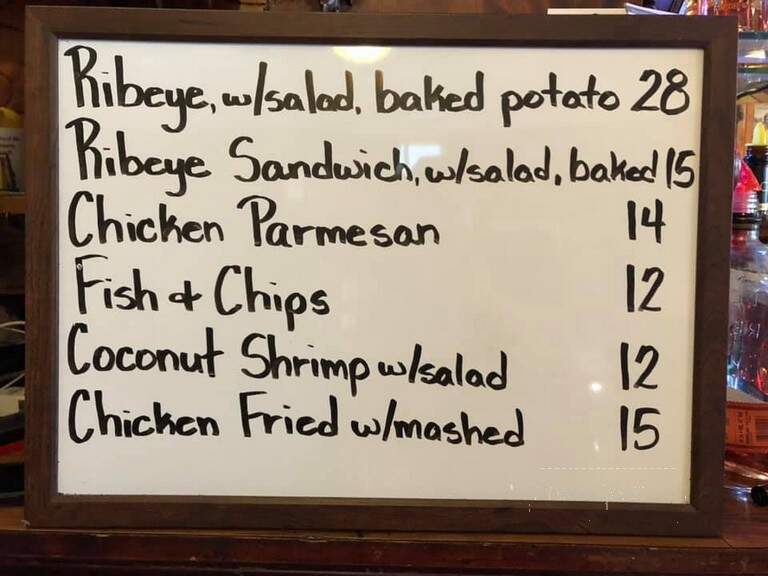 Ribeye, w/salad, baked potato 28
Ribeye Sandwich, w/salad, baked 15
Chicken Parmesan 14
Fish & Chips 12
Coconut Shrimp w/salad 12
Chicken Fried w/mashed 15